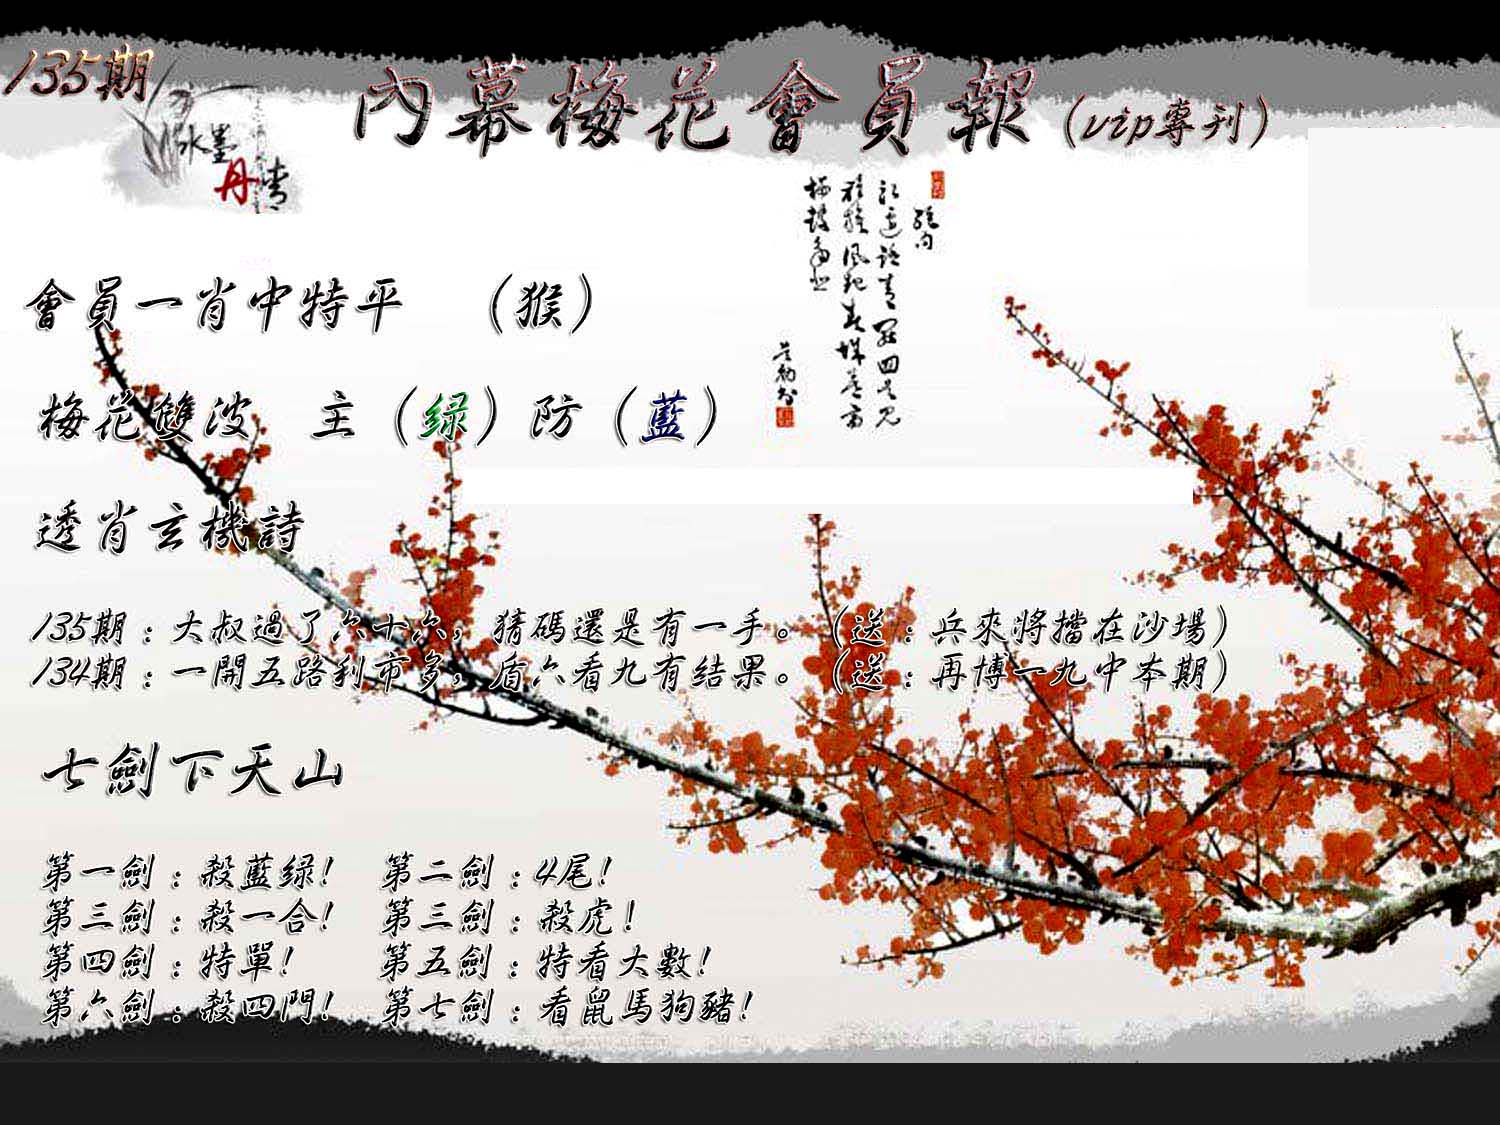 135期
內幕梅花會員報(vip專刊)
水墨
丹青
會員一肖中特平 (猴)
梅花雙波 主(绿)防(藍)
透肖玄機詩
135期:大叔過了六十六,猜碼還是有一手。(送:兵來將擋在沙場)
134期:一開五路利市多,盾六看九有结果。(送:再博一九中本期)
七劍下天山
第一劍:殺藍绿! 第二劍:4尾!
第三劍:殺一合! 第三劍:殺虎!
第四劍:特單! 第五劍:特看大數!
第六劍:殺四門! 第七劍:看鼠馬狗豬!